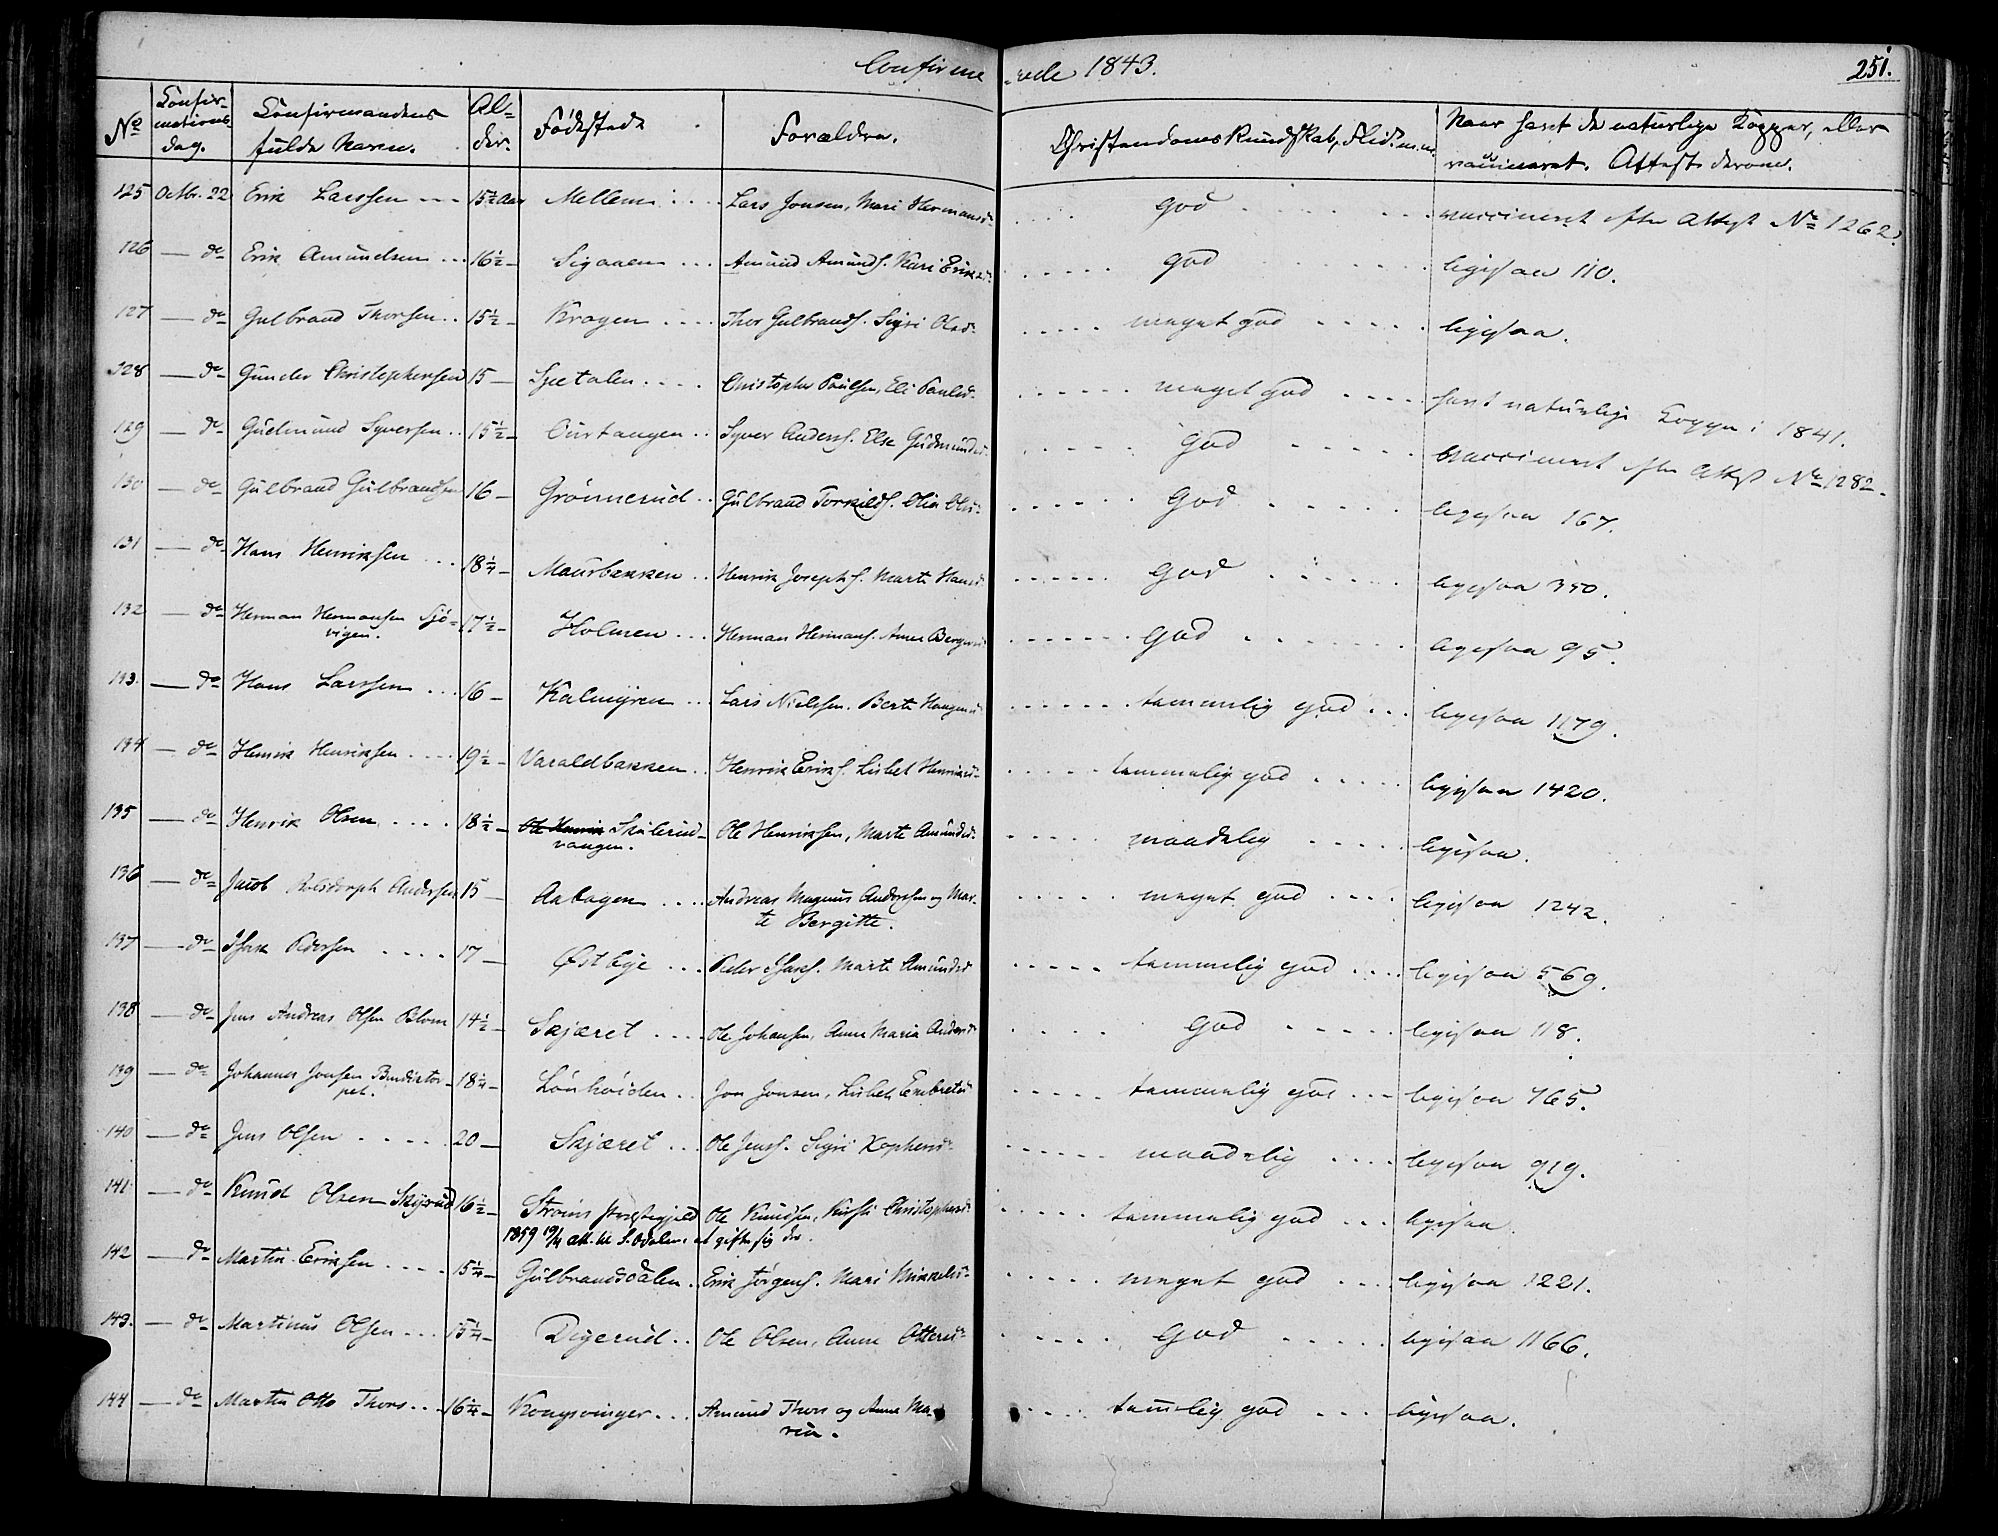 Confirme rede 1843. 251.
No Confirmations dag. Confirmandens fulde Navn. Alder. Fødested Forældre. Christendoms Kundskab, Flid m.m. Naar havt de naturlige Kopper, eller vaccineret. Attest derom.
125 Octbr. 22 Erik Larssen 15½ Aar Mellem Lars Jonsen, Mari Hermansd. god vaccineret efter Attest No 1262.
126 — do Erik Amundsen 16½ — Sigaalen Amund Amunds. Kari Eriksd. god ligesaa 110.
127 — do Gulbrand Thorsen 15½ — Kragen Thor Gulbrands. Sigri Olsd. meget god ligesaa.
128 — do Gunder Christophersen 15 — Spetalen Christopher Poulsen, Eli Paulsd. meget god havt naturlige Kopper i 1841.
129 — do Gudmund Syversen 15½ — Ourtangen Syver Anders. Else Gudmundsd. god vaccineret efter Attest No 1282.
130 — do Gulbrand Gulbrandsen 16 — Grønnerud Gulbrand Torkilds. Olia Olsd. God ligesaa 167.
131 — do Hans Henriksen 18¼ — Maurbakken Henrik Josephs. Marte Hansd. God ligesaa 350.
132 — do Herman Hermansen Sjø- 17½ — Holmen Herman Hermans. Anne Bergersd. God ligesaa 95.
vigen.
133. — do Hans Larssen 16 — Kalmyren Lars Nielssen. Berte Haagensd. temmelig god ligesaa 1179.
134 — do Henrik Henriksen 19½ — Varaldbakken Henrik Eriks. Lisbet Henriksd. temmelig god ligesaa 1420.
135 — do Henrik Olsen 18½ — Ole Henrik Skulerud- Ole Henriksen, Marte Amundsd. maadelig ligesaa.
vangen.
136 — do Jacob Andersen 15 — Aabogen Andreas Magnus Anderssen og Mar- meget god ligesaa 1242.
te Bergitte.
137 — do Isak Pedersen 17 — Østbye Peder Isaks. Marte Amundsd. temmelig god ligesaa 569.
138 — do Jens Andreas Olsen Blom 14½ — Skjæret Ole Johansen, Anne Maria Andersd. God ligesaa 118.
139 — do Johannes Jonsen Bendiktor- 18¼ — Lønhøiden Jon Jonsen, Lisbet Embretsd. temmelig god ligesaa 765.
pet.
140 — do Jens Olsen 20 — Skjæret Ole Jenss. Sigri maadelig ligesaa 919.
141 — do Knud Olsen Skyrud 16½ — Strøms Præstegjeld Ole Knudsen, Kirsti Christophersd. temmelig god ligesaa.
1859 19/4 att. til S. Odalen at gifte sig der.
142 — do Martin Eriksen 15¼ — Gulbrandsdalen Erik Jørgens. Mari Mikkelsd. meget god ligesaa 1221.
143. — do Martinus Olsen 15¼ — Digerud Ole Olsen, Anne Ottersd. God ligesaa 1166.
144 — do Martin Otto Thors 16¼ — Kongsvinger Amund Thors og Anne Ma- temmelig god ligesaa.
ria.